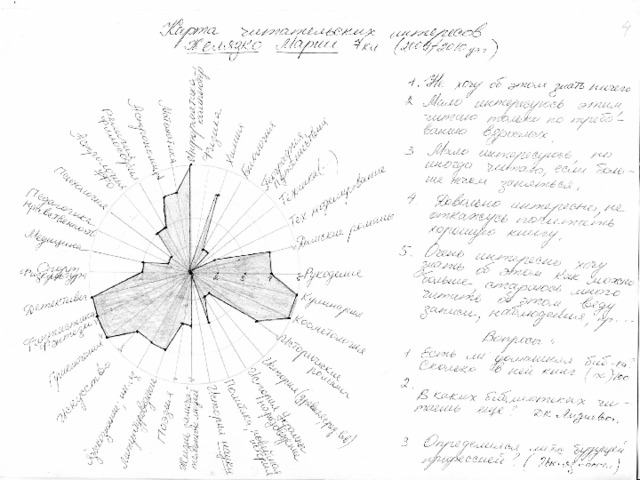 Карта читательских интересов
Желязко Марии 7 кл (2009-2010
4
Информатика
компьютер
Физика
Химия
Биология
География
путешествия
Техника
Тех моделирование
Дамские романы
Рукоделие
Кулинария
Косметология
Исторические
романы
История
История Украины
Политика
История науки
Жизнь
Поэзия
Литературоведение
Искусство
Приключения
Фантастика
Фэнтези
Детективы
Спорт
Медицина
Педагогика
нравственность
Психология
Астрономия
Математика
2 3 4
1. Не хочу об этом знать ничего
2 Мало интересуюсь этим
читаю только по требо-
ванию взрослых.
3 Мало интересуюсь но
иногда читаю, если боль-
ше нечем заняться.
4 Довольно интересно, не
откажусь почитать
хорошую книгу.
5. Очень интересно хочу
знать об этом как можно
больше стараюсь много
читать об этом веду
записи, наблюдения, др...
Вопросы:
1 Есть ли домашняя биб-ка?
Сколько в ней книг
2.
В каких библиотеках чи-
таешь еще? ДК
3 Определился ли с будущей
профессией?